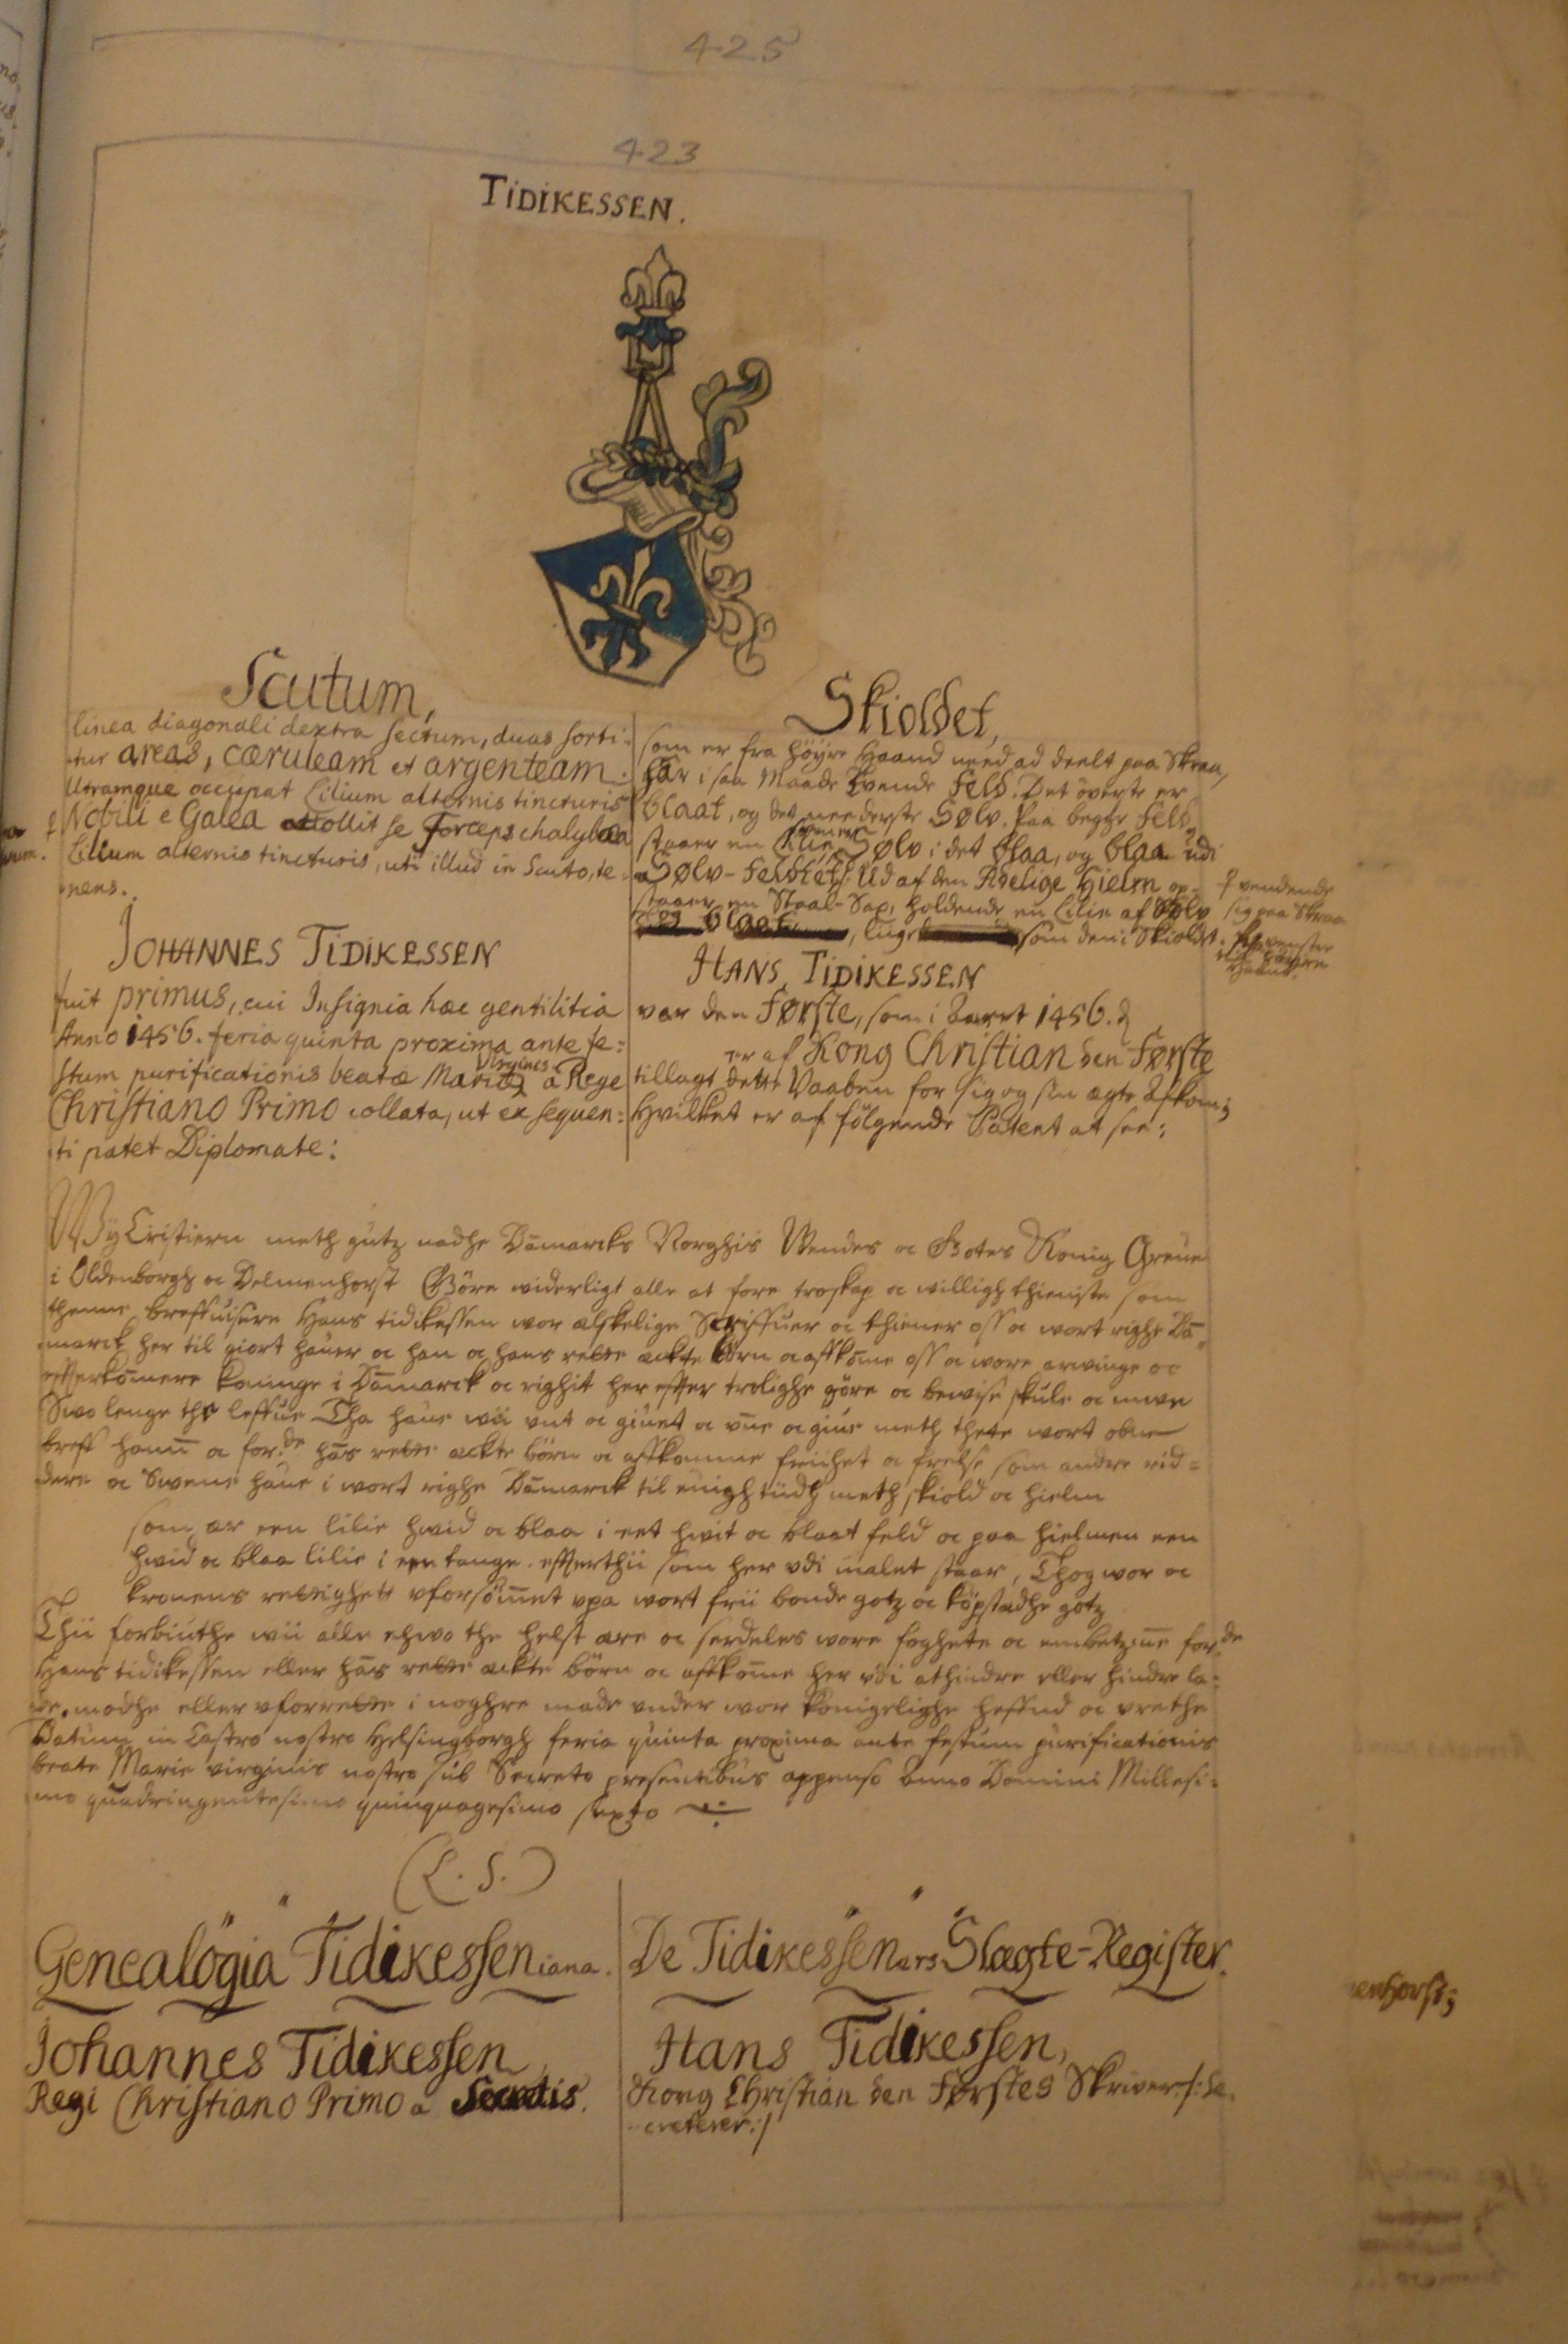 425
423
TIDIKESSEN.
Scutum,
linea diagonali dextra sectum, duas sorti-
tur areas, cæruleam et argenteam.
Utramque occupat Lilium alternis tincturis
Nobili e Galea attollit se Forceps chalybæa
Lilium alternis tincturis, uti illud in Scuto, te-
nens.
JOHANNES TIDIKESSEN
fuit primus, cui Insignia hæc gentilitia
Anno 1456. feria quinta proxima ante fe-
stum purificationis beatæ Mariæ Virginis a Rege
Christiano Primo collata, ut ex sequen-
ti patet Diplomate:
Skioldet,
som er fra höyre Haand need ad deelt paa Skraa,
har i saa Maade Tvende Feld. Det överste er
blaat, og det neederste Sølv. Paa begge Feld
staaer en Lilie, Sølv i det blaa, og blaa udi
Sølv-Feldtet: Ud af den Adelige Hielm op-
staaer en Staal-Sax, holdende en Lilie af Sølv
og blaat, som den i Skioldet.
vendende
sig paa Skraa
fra venstre
til høyre
Haand.
HANS TIDIKESSEN
var den Første, som i Aaret 1456.
er af Kong Christian den Første
tillagt dette Vaaben for sig og sin ægte Afkom;
Hvilket er af fölgende Patent at see:
Wy Cristiern meth gutz nadhe Dāmarcks Norghis Wendes oc Gotes Konig Greue
i Oldenborgh oc Delmenhorst Göre widerligt alle at fore troskap oc willigh thieniste som
thenne breffuisere Hans tidikessen wor elskelige Scriffuer oc thiener oss oc wort righe Dā-
marck her til giort hauer oc han oc hans rette ackte börn oc affkōme oss oc wore arwinge oc
effterkōmere koninge i Dāmarck oc righit her effter trolighe göre oc bewise skule oc mwe
Swo lenge the leffue Tha haue wii unt oc giuet oc vne oc giue meth thette wort obne
breff hanū oc for.de hās rette ackte börn oc affkomme friihet oc frelse som andre rid-
dere oc Swene haue i wort righe Dāmarck til ewigh tiidh meth skiold oc hielm
som ær een lilie hwid oc blaa i eet hwit oc blaat feld oc paa hielmen een
hwid oc blaa lilie i een tange. effterthii som her vdi malet staar, Thog wor oc
kronens rettighett vforsōmet vpa wort frii bonde gotz oc köpstædhe gotz
Thii forbiuthe wii alle ehwo the helst ære oc serdeles wore foghete oc embetzmē for.de
Hans tidikessen eller hās rette ackte börn oc affkōme her vdi athindre eller hindre la-
de, mödhe eller vforrette i noghre made vnder wor konigelighe heffnd oc vrethe
Datum in Castro nostro Helsingborgh feria quinta proxima ante festum purificationis
beate Marie virginis nostro sub Secreto presentibus appenso Anno Domini Millesi-
mo quadringentesimo quinquagesimo sexto
(L. S.)
Genealogia Tidikesseniana.
Johannes Tidikessen
Regi Christiano Primo a Secretis.
De Tidikesseners Slægte-Register.
Hans Tidikessen,
Kong Christian den Førstes Skriver /: Se-
creterer :/
enhorst;